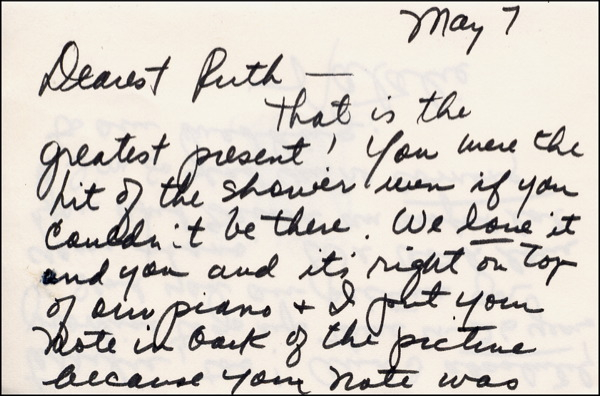 May 7
Dearest Ruth —
That is the
greatest present! You were the
hit of the shower even if you
couldn't be there. We love it
and you and it's right on top
of our piano + I put your
note in back of the picture
because your note was